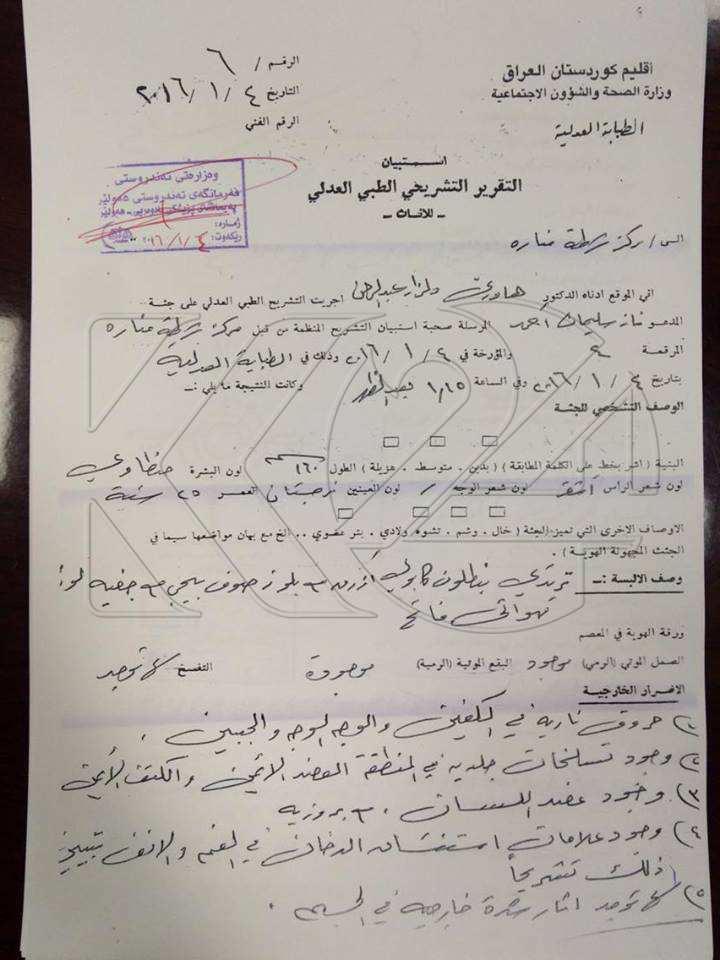 اقليم كوردستان العراق
وزارة الصحة والشؤون الاجتماعية
الطبابة العدلية
الرقم / ٦
التاريخ ٤ / ١ / ٢٠١٦
الرقم الفني
وەزارەتی تەندروستی
فەرمانگەی تەندروستی هەولێر
ژمارە:
ڕێکەوت: ٤ / ١ / ٢٠١٦
استبيان
التقرير التشريحي الطبي العدلي
- للاناث -
الى / مركز شرطة مناره
اني الموقع ادناه الدكتور عبدالرحمن اجريت التشريح الطبي العدلي على جثة
المدعو سليمان احمد المرسلة صحبة استبيان التشريح المنظمة من قبل مركز شرطة مناره
المرقمة والمؤرخة في ٤ / ١ / ٢٠١٦ وذلك في الطبابة العدلية
بتاريخ ٤ / ١ / ٢٠١٦ وفي الساعة ١,١٥ وكانت النتيجة ما يلي :ـ
الوصف التشخصي للجثة
البنية ( اشر بخط على الكلمة المطابقة ) ( بدين . متوسط . هزيلة ) الطول ١٦٠ سم لون البشرة حنطاوي
لون شعر الراس اشقر لون شعر الوجه لون العينين العمر ٢٥ سنة
الاوصاف الاخرى التي تميز الجثة ( خال . وشم . تشوه ولادي . بتر عضوي .. الخ مع بيان مواضعها سيما في
الجثث المجهولة الهوية ) .
وصف الالبسة :ـ ترتدي بنطلون كابوي ازرق بلوز صوف بيجي
فاتح
ورقة الهوية في المعصم
الصمل الموتي (الرمي) موجود البقع الموتية (الرمية) موجودة التفسخ لا توجد
الاضرار الخارجية
١) حروق ناريه في الكفين والوجه والجبين .
٢) وجود تسلخات جلديه في المنطقة العضد الأيمن والكتف الأيمن
٣) وجود عضد اللسان .
٤) وجود علامات استنشاق الدخان في الفم والانف
ذلك تشريحياً
٥) لا توجد اثار شدة خارجيه في الجسم .
K24